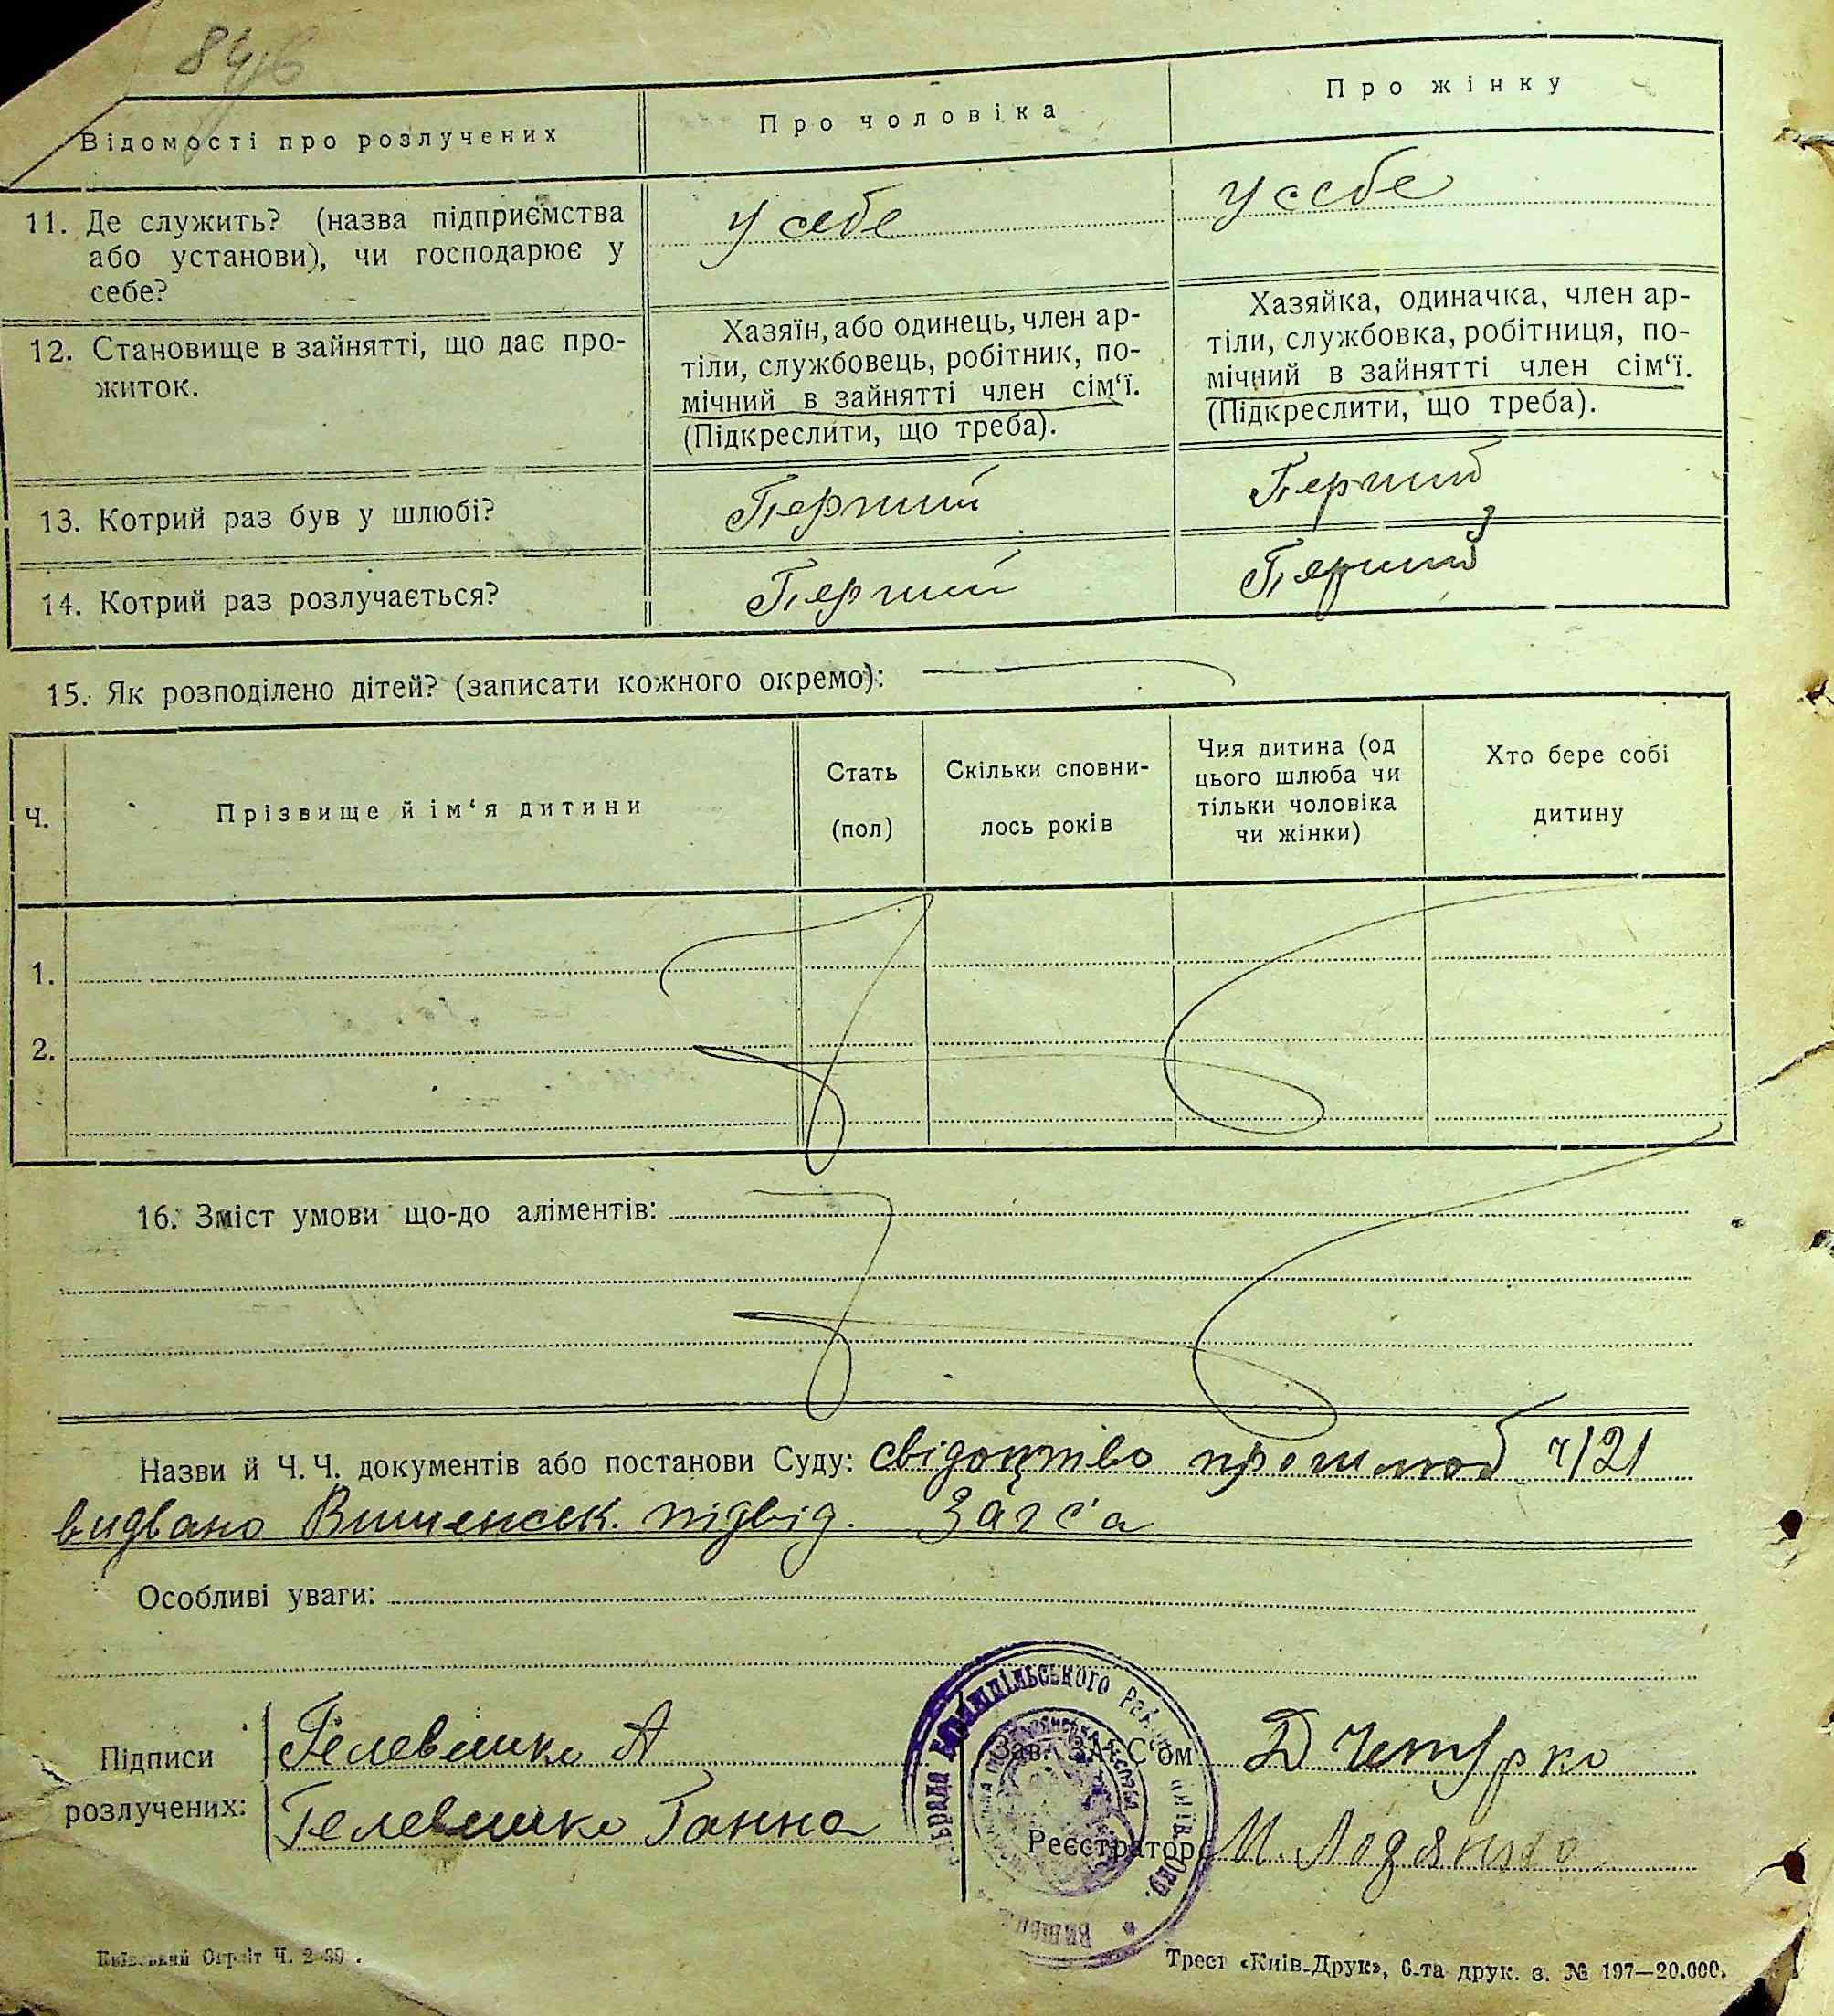 84/6
Відомості про розлучених
Про чоловіка
Про жінку
11. Де служить? (назва підприємства
або установи), чи господарює у
себе?
у себе
у себе
12. Становище в зайнятті, що дає про-
житок.
Хазяїн, або одинець, член ар-
тіли, службовець, робітник, по-
мічний в зайнятті член сім‘ї.
(Підкреслити, що треба).
Хазяйка, одиначка, член ар-
тіли, службовка, робітниця, по-
мічний в зайнятті член сім‘ї.
(Підкреслити, що треба).
13. Котрий раз був у шлюбі?
Перший
Перший
14. Котрий раз розлучається?
Перший
Перший
15. Як розподілено дітей? (записати кожного окремо):
Ч.
Прізвище й ім‘я дитини
Стать
(пол)
Скільки сповни-
лось років
Чия дитина (од
цього шлюба чи
тільки чоловіка
чи жінки)
Хто бере собі
дитину
1.
2.
16. Зміст умови що-до аліментів:
Назви й Ч. Ч. документів або постанови Суду: свідоцтво про шлюб ч/21
видвано Вишенськ. підвід. Загс'а
Особливі уваги:
Підписи
розлучених:
Гелевешко А
Гелевешко Ганна
Зав. ЗАГС‘ом
Д Четурко
Реєстратор
М.
Трест «Київ-Друк», 6-та друк. з. № 197—20.000.